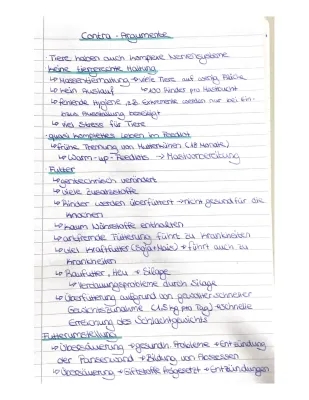 Contra - Argumente
Tiere haben auch komplexe Nervensysteme
keine tiergerechte Haltung
↳ Massentierhaltung → viele Tiere auf wenig Fläche
↳ kein Auslauf ↳ 100 Rinder pro Mastbucht
↳ fehlende Hygiene, z.B. Exkremente werden nur bei Ein-
bzw. Ausstallung beseitigt
↳ viel Stress für Tiere
quasi komplettes Leben im Feedlot
↳ frühe Trennung von Mutterkühen
↳ Warm-up-Feedlots → Mastvorbereitung
Futter
↳ gentechnisch verändert
↳ viele Zusatzstoffe
↳ Rinder werden überfüttert → nicht gesund für die
Knochen
↳ kaum Nährstoffe enthalten
↳ artfremde Fütterung führt zu Krankheiten
↳ viel Kraftfutter (Soja + Mais) → führt auch zu
Krankheiten
↳ Raufutter, Heu + Silage
↳ Verdauungsprobleme durch Silage
↳ Überfütterung aufgrund von gewollter schneller
Gewichtszunahme (1,5kg pro Tag) → schnelle
Erreichung des Schlachtgewichts
Futterumstellung
↳ Übersäuerung → gesundh. Probleme → Entzündung
der Pansenwand → Bildung von Abszessen
↳ Übersäuerung → Giftstoffe freigesetzt → Entzündungen